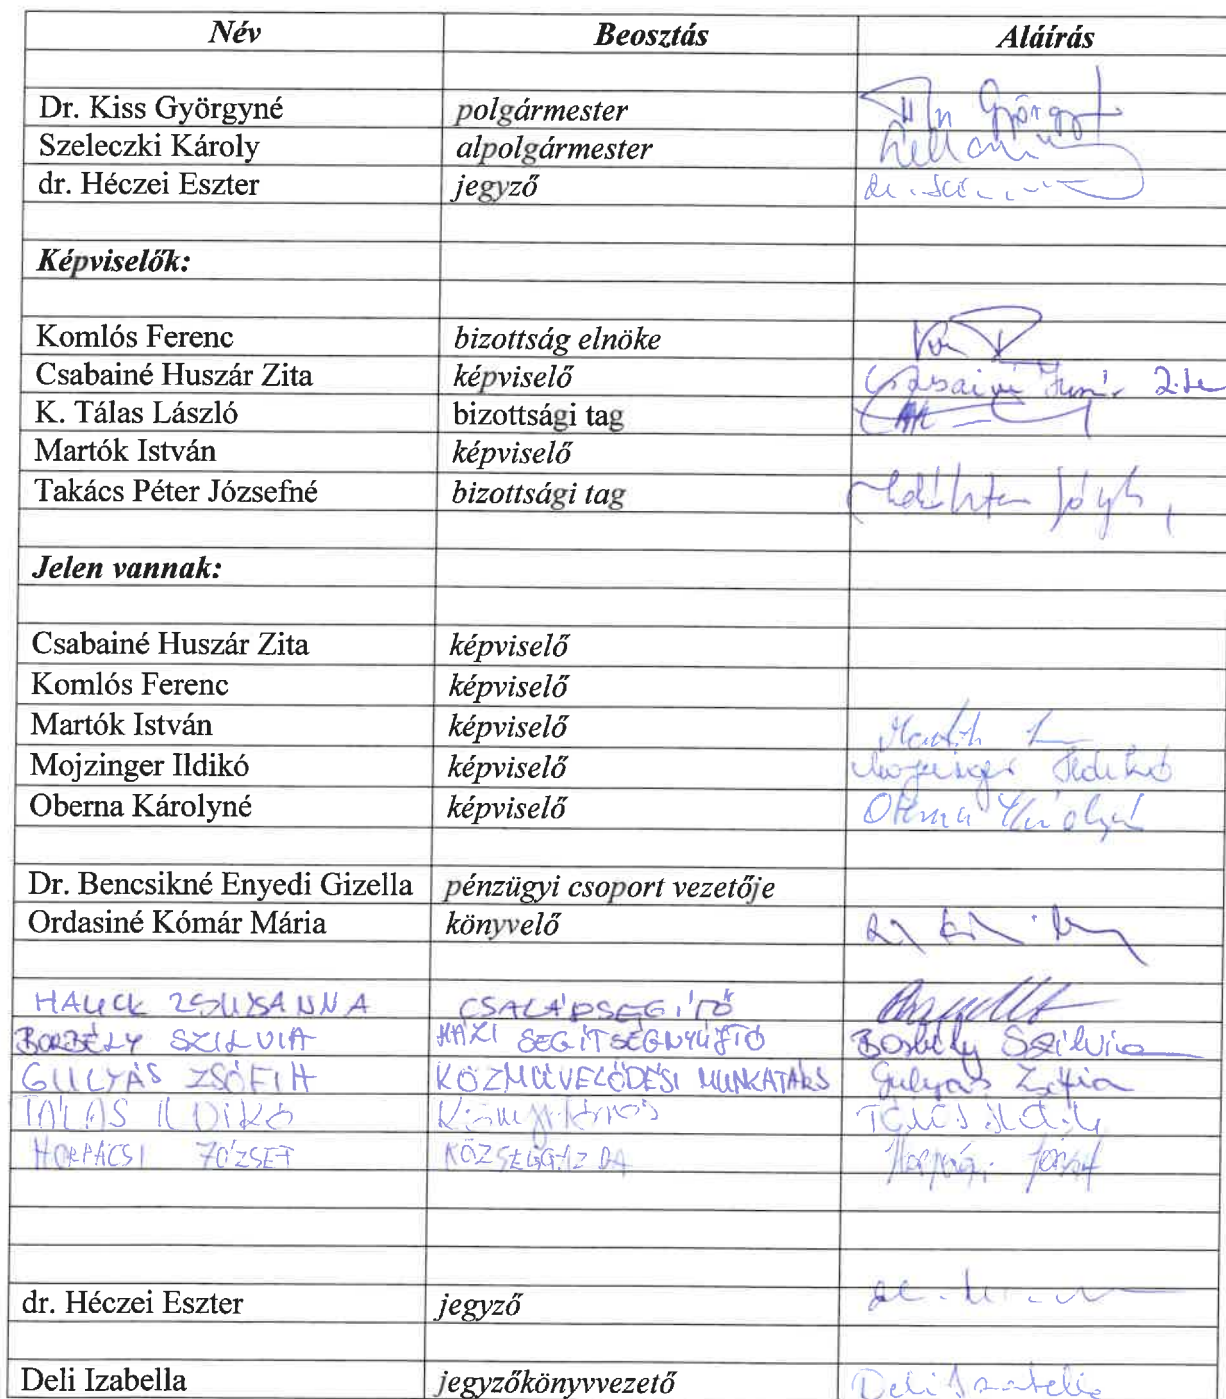 Név Beosztás Aláírás
Dr. Kiss Györgyné polgármester
Szeleczki Károly alpolgármester
dr. Héczei Eszter jegyző
Képviselők:
Komlós Ferenc bizottság elnöke
Csabainé Huszár Zita képviselő
K. Tálas László bizottsági tag
Martók István képviselő
Takács Péter Józsefné bizottsági tag
Jelen vannak:
Csabainé Huszár Zita képviselő
Komlós Ferenc képviselő
Martók István képviselő
Mojzinger Ildikó képviselő Mojzinger Ildikó
Oberna Károlyné képviselő
Dr. Bencsikné Enyedi Gizella pénzügyi csoport vezetője
Ordasiné Kómár Mária könyvelő
HAUCK ZSUZSANNA CSALÁDSEGÍTŐ
BORBÉLY SZILVIA HÁZI SEGÍTSÉGNYÚJTÓ Borbély Szilvia
GULYÁS ZSÓFIA KÖZMŰVELŐDÉSI MUNKATÁRS Gulyás Zsófia
TÁLAS ILDIKÓ Könyvtáros Tálas Ildikó
HORPÁCSI JÓZSEF KÖZSÉGGAZDA Horpácsi József
dr. Héczei Eszter jegyző
Deli Izabella jegyzőkönyvvezető Deli Izabella